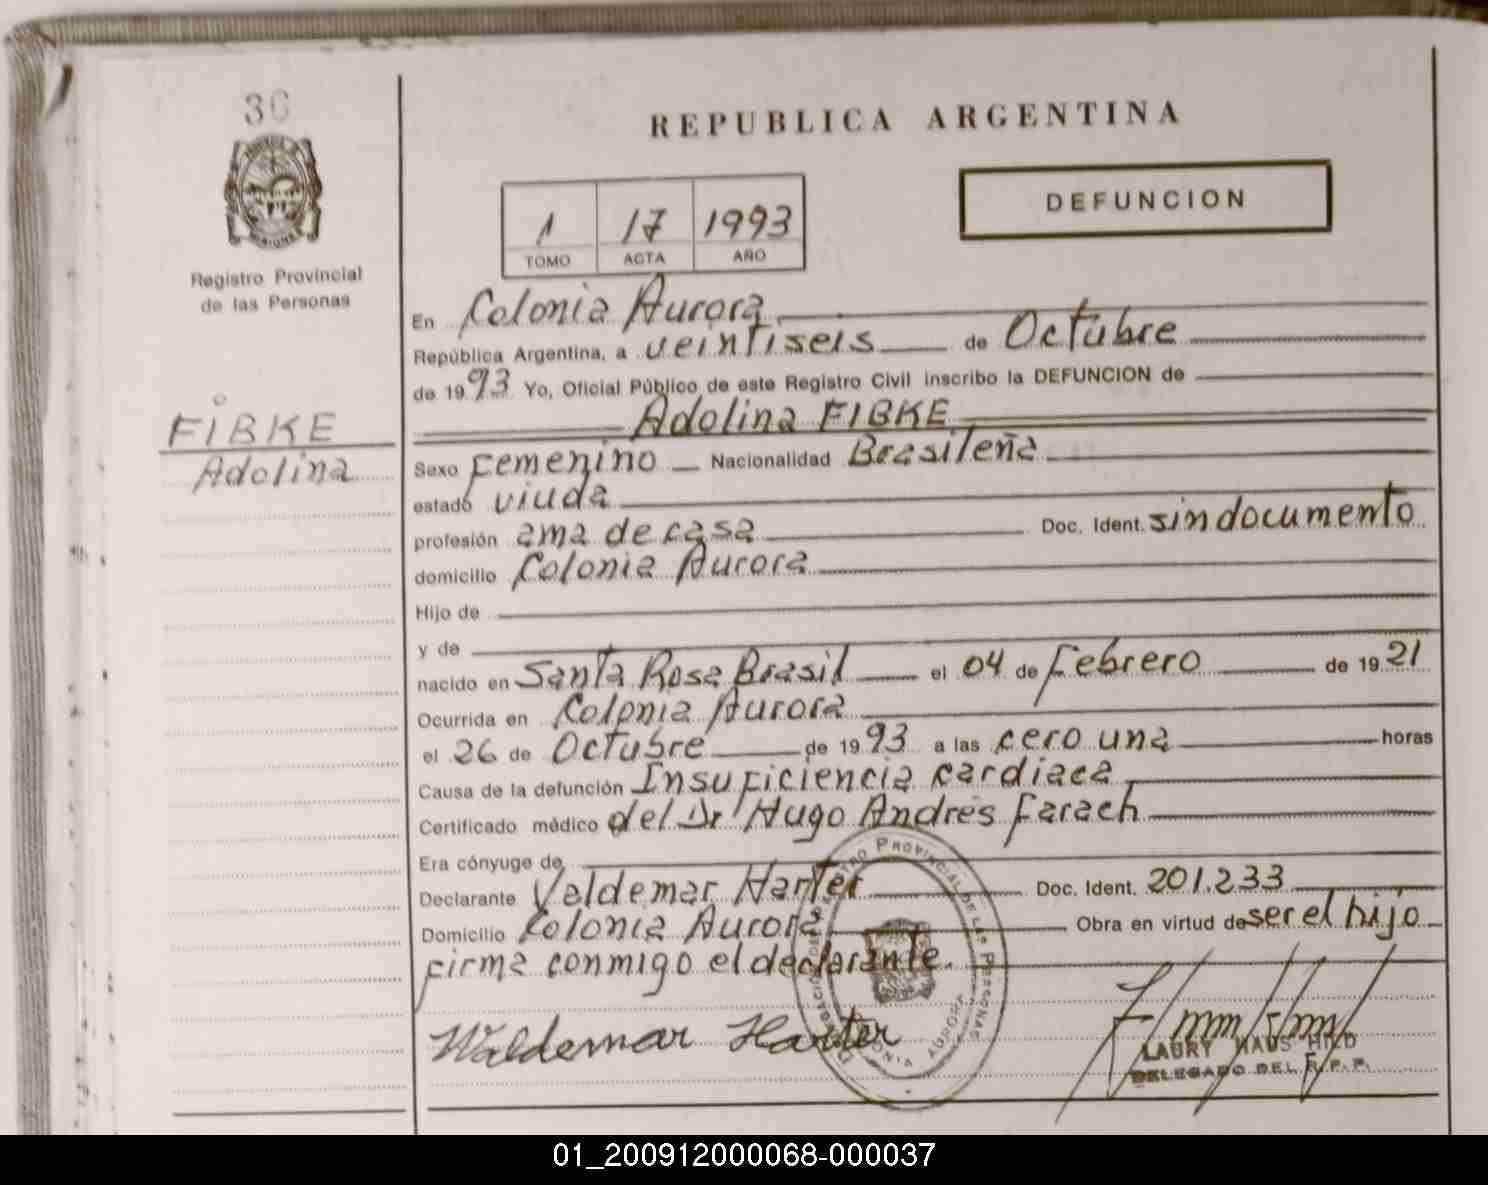 36
REPUBLICA ARGENTINA
DEFUNCION
1 17 1993
TOMO ACTA AÑO
Registro Provincial
de las Personas
FIBKE
Adolina
En Colonia Aurora
República Argentina, a veintiseis de Octubre
de 1993 Yo, Oficial Público de este Registro Civil inscribo la DEFUNCION de
Adolina FIBKE
Sexo Femenino Nacionalidad Brasileña
estado viuda
profesión ama de casa Doc. Ident. sin documento
domicilio Colonia Aurora
Hijo de
y de
nacido en Santa Rosa Brasil el 04 de Febrero de 1921
Ocurrida en Colonia Aurora
el 26 de Octubre de 1993 a las cero una horas
Causa de la defunción Insuficiencia cardiaca
Certificado médico del Dr Hugo Andrés Farach
Era cónyuge de
Declarante Valdemar Harter Doc. Ident. 201.233
Domicilio Colonia Aurora Obra en virtud de ser el hijo
firma conmigo el declarante.
Waldemar Harter
LAURY HAUS HILD
DELEGADO DEL R.P.P.
DELEGACIÓN DEL REGISTRO PROVINCIAL DE LAS PERSONAS
COLONIA AURORA
01_200912000068-000037